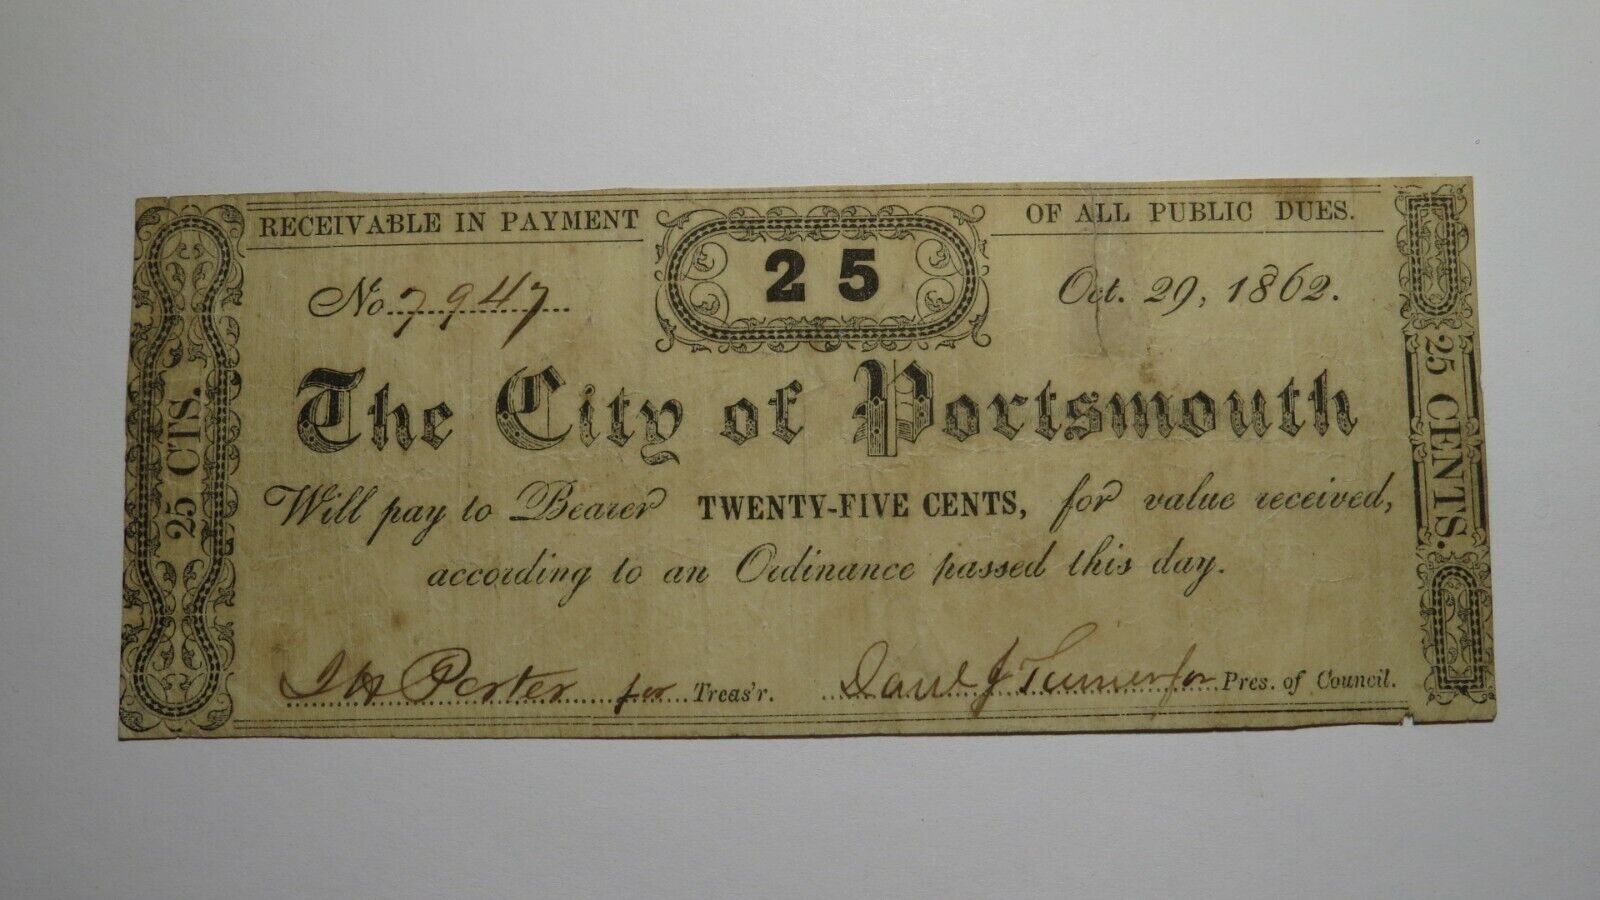 RECEIVABLE IN PAYMENT OF ALL PUBLIC DUES.
25
No. 7947 Oct. 29, 1862.
The City of Portsmouth
Will pay to Bearer TWENTY-FIVE CENTS, for value received,
according to an Ordinance passed this day.
Porter for Treas'r. Danl J Turner for Pres. of Council.
25 CTS.
25 CENTS.